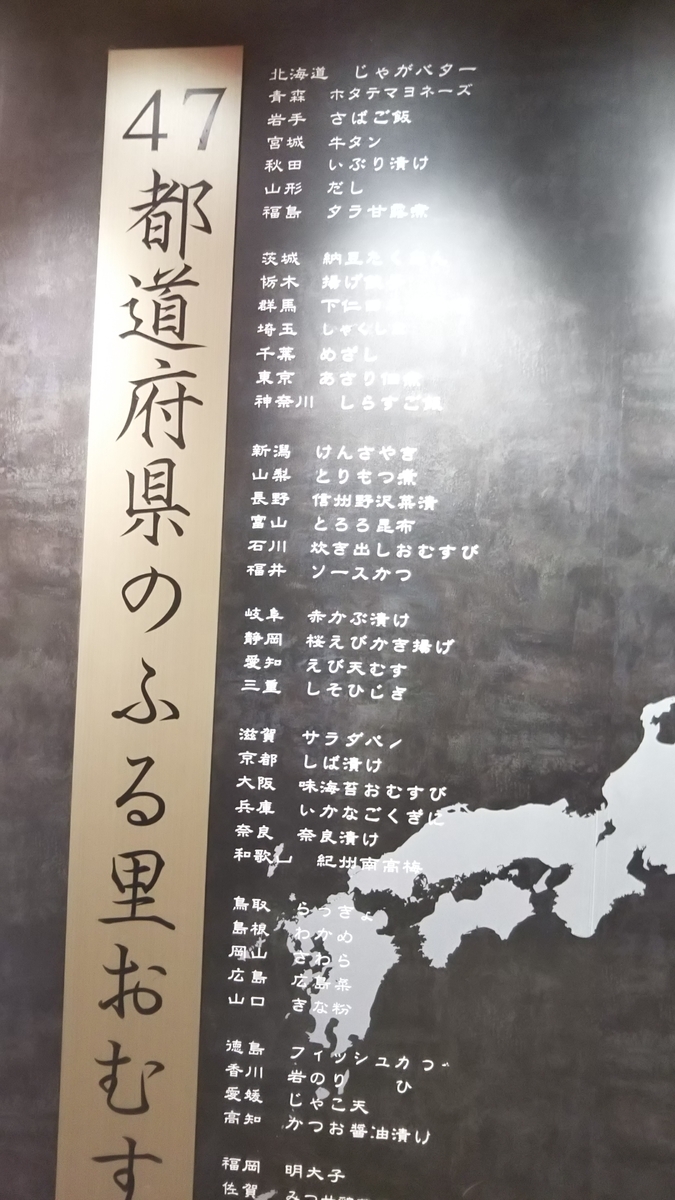 47都道府県のふる里おむす
北海道 じゃがバター
青森 ホタテマヨネーズ
岩手 さばご飯
宮城 牛タン
秋田 いぶり漬け
山形 だし
福島 タラ甘露煮
茨城 納豆
栃木 揚げ
群馬 下仁田
埼玉
千葉 めざし
東京 あさり佃煮
神奈川 しらすご飯
新潟 けんさやき
山梨 とりもつ煮
長野 信州野沢菜漬
富山 とろろ昆布
石川 炊き出しおむすび
福井 ソースかつ
岐阜 赤かぶ漬け
静岡 桜えびかき揚げ
愛知 えび天むす
三重 しそひじき
滋賀 サラダパン
京都 しば漬け
大阪 味海苔おむすび
兵庫 いかなごくぎに
奈良 奈良漬け
和歌山 紀州南高梅
鳥取 らっきょ
島根 わかめ
岡山 さわら
広島 広島菜
山口 きな粉
徳島 フィッシュカつ
香川 岩のり ひ
愛媛 じゃこ天
高知 かつお醤油漬け
福岡 明太子
佐賀